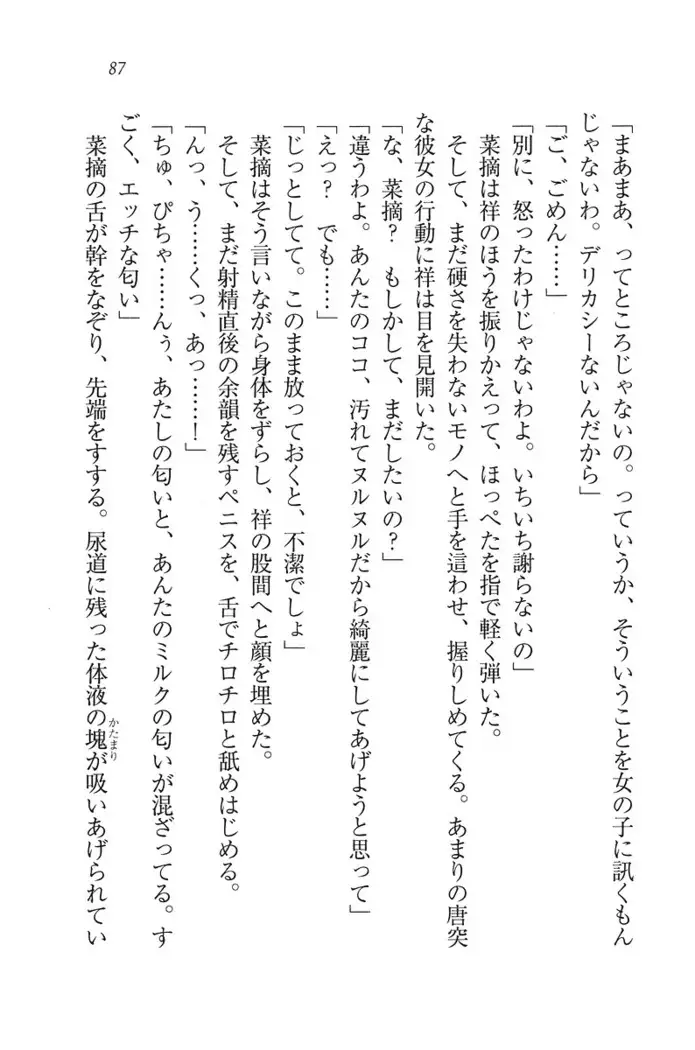 87
「まあまあ、ってところじゃないの。っていうか、そういうことを女の子に訊くもん
じゃないわ。デリカシーないんだから」
「ご、ごめん……」
「別に、怒ったわけじゃないわよ。いちいち謝らないの」
菜摘は祥のほうを振りかえって、ほっぺたを指で軽く弾いた。
そして、まだ硬さを失わないモノへと手を這わせ、握りしめてくる。あまりの唐突
な彼女の行動に祥は目を見開いた。
「な、菜摘？　もしかして、まだしたいの？」
「違うわよ。あんたのココ、汚れてヌルヌルだから綺麗にしてあげようと思って」
「えっ？　でも……」
「じっとしてて。このまま放っておくと、不潔でしょ」
菜摘はそう言いながら身体をずらし、祥の股間へと顔を埋めた。
そして、まだ射精直後の余韻を残すペニスを、舌でチロチロと舐めはじめる。
「んっ、う……くっ、あっ……！」
「ちゅ、ぴちゃ……んぅ、あたしの匂いと、あんたのミルクの匂いが混ざってる。す
ごく、エッチな匂い」
菜摘の舌が幹をなぞり、先端をすする。尿道に残った体液の塊かたまりが吸いあげられてい